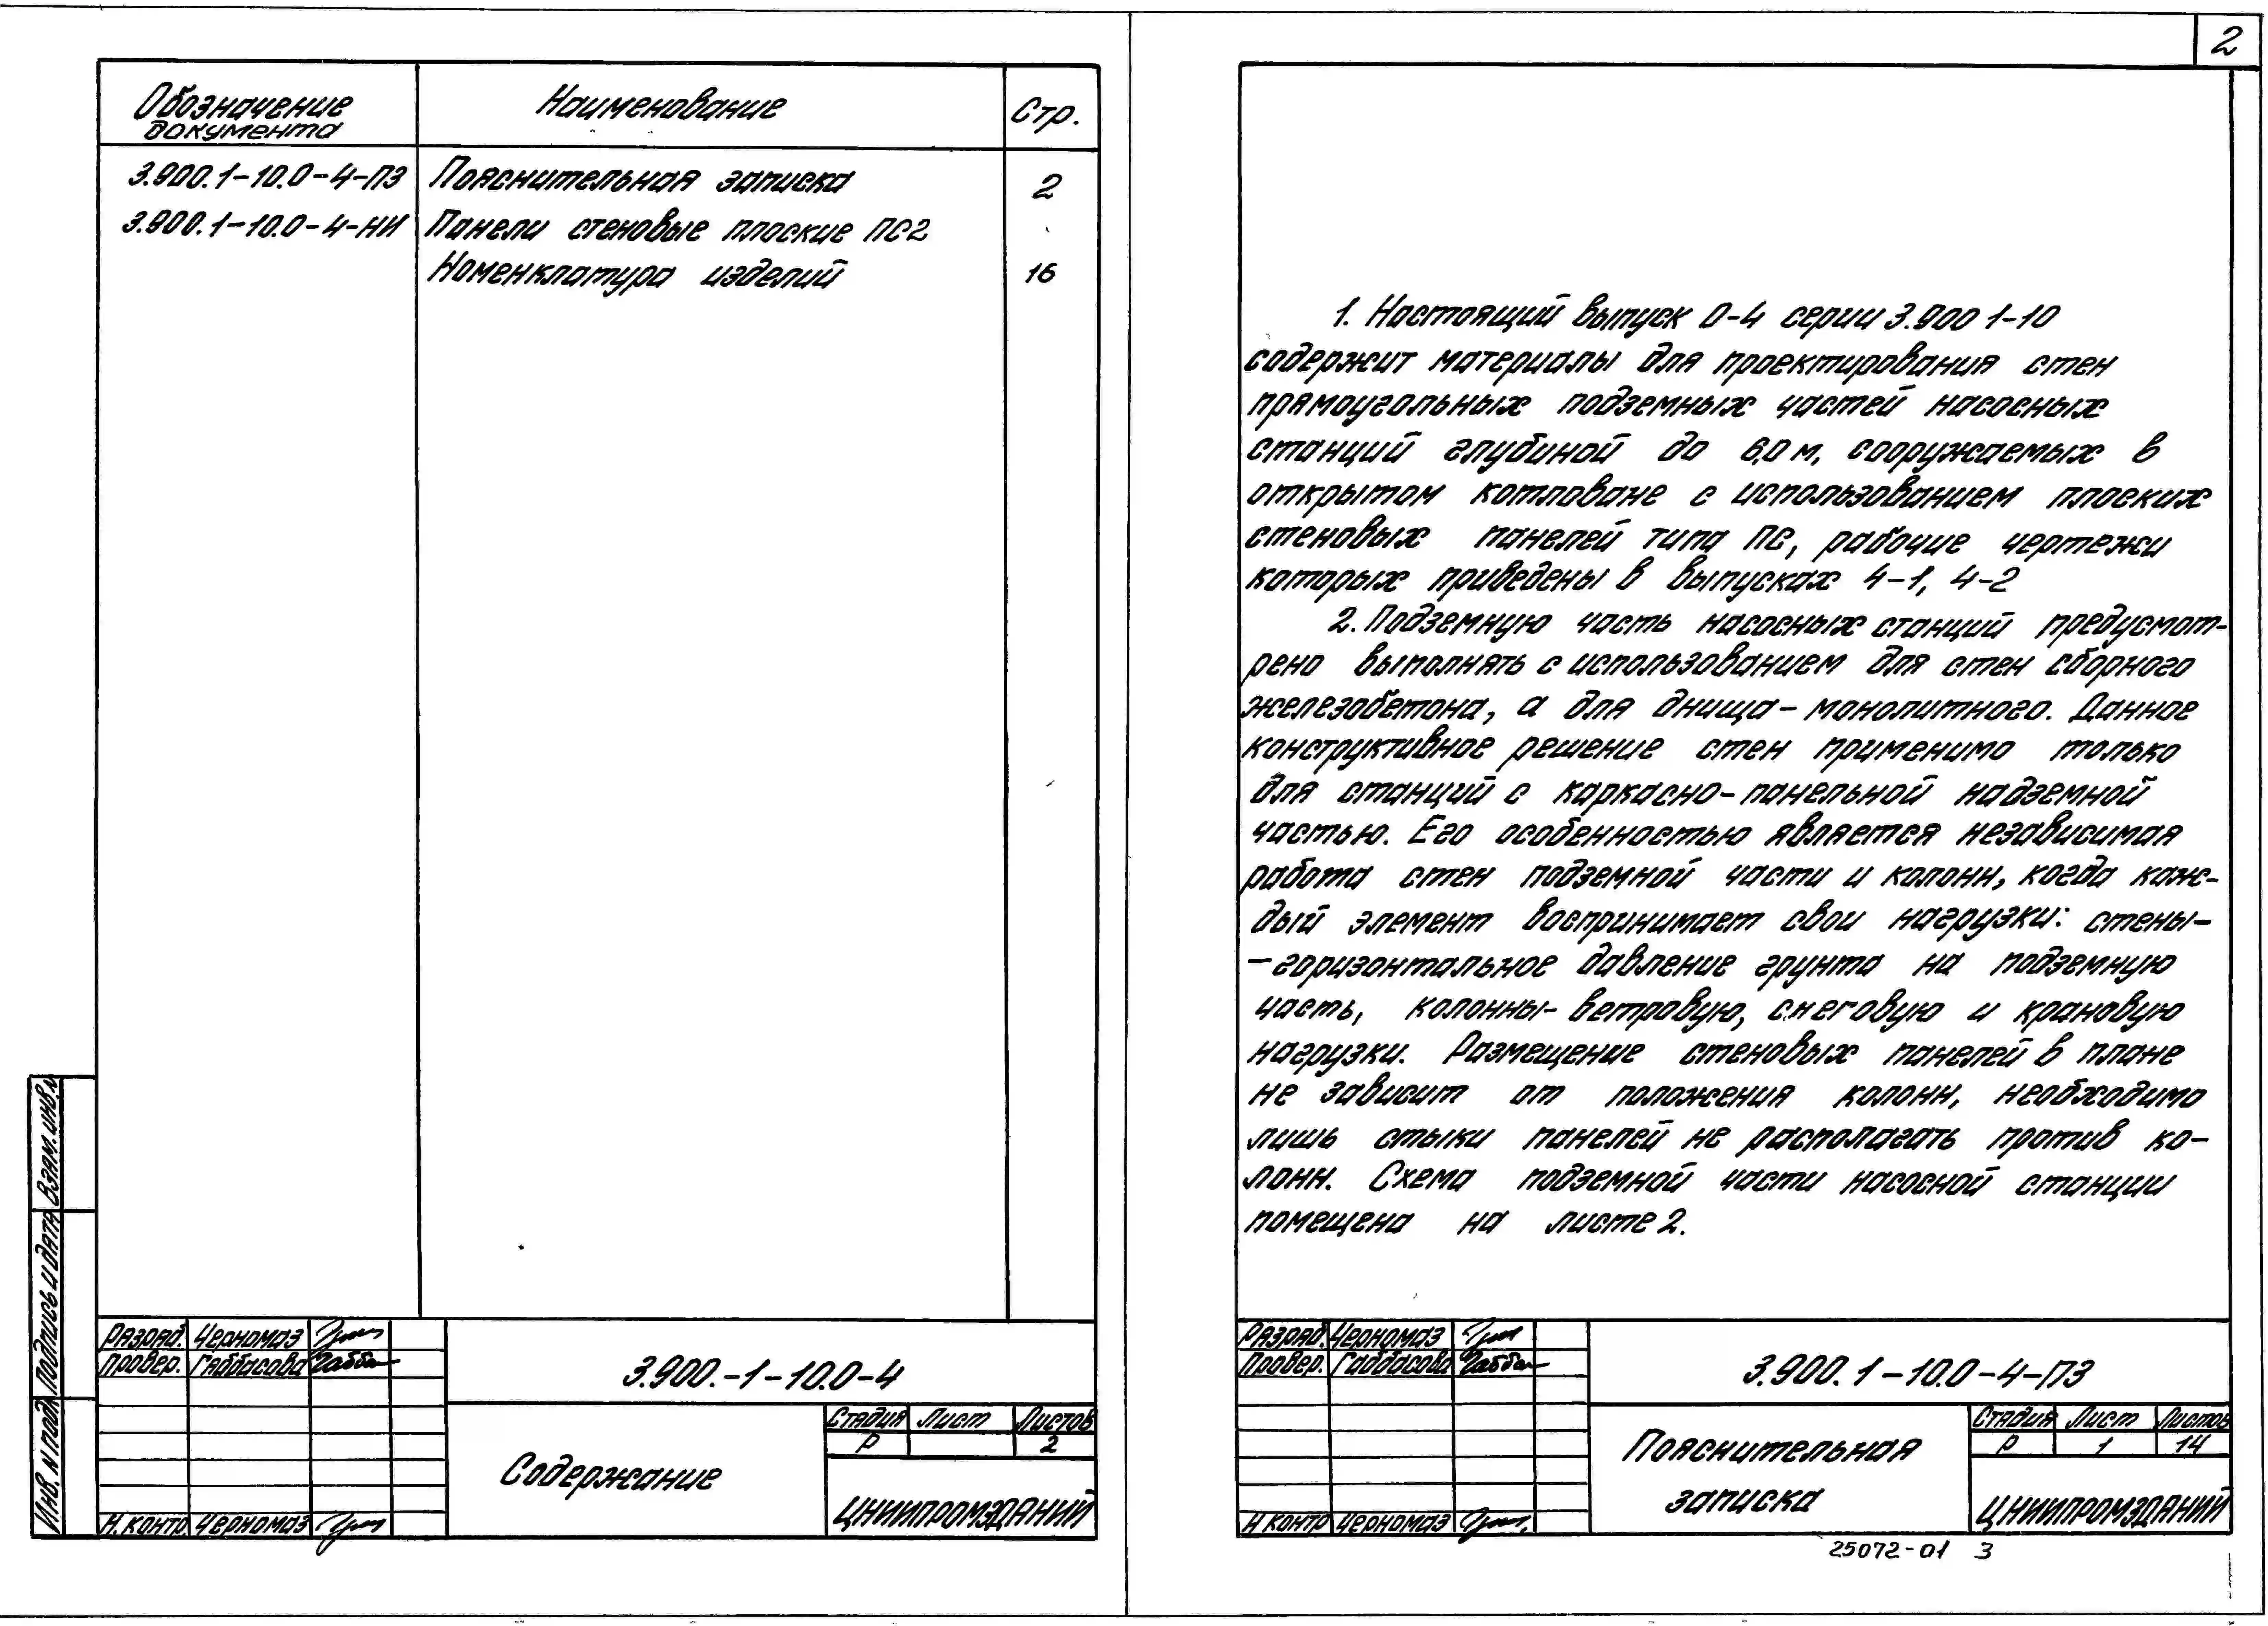 Обозначение документа Наименование Стр.
3.900.1-10.0-4-ПЗ Пояснительная записка 2
3.900.1-10.0-4-НИ Панели стеновые плоские ПС2
Номенклатура изделий 16
Взам. инв. N
Подпись и дата
Инв. N подл
Разраб. Черномаз
Провер. Габбасова
Н. контр. Черномаз
3.900.-1-10.0-4
Содержание
Стадия Лист Листов
Р 2
ЦНИИПРОМЗДАНИЙ
2
1. Настоящий выпуск 0-4 серии 3.900 1-10
содержит материалы для проектирования стен
прямоугольных подземных частей насосных
станций глубиной до 6,0 м, сооружаемых в
открытом котловане с использованием плоских
стеновых панелей типа ПС, рабочие чертежи
которых приведены в выпусках 4-1, 4-2
2. Подземную часть насосных станций предусмот-
рено выполнять с использованием для стен сборного
железобетона, а для днища - монолитного. Данное
конструктивное решение стен применимо только
для станций с каркасно-панельной надземной
частью. Его особенностью является независимая
работа стен подземной части и колонн, когда каж-
дый элемент воспринимает свои нагрузки: стены-
-горизонтальное давление грунта на подземную
часть, колонны- ветровую, снеговую и крановую
нагрузки. Размещение стеновых панелей в плане
не зависит от положения колонн, необходимо
лишь стыки панелей не располагать против ко-
лонн. Схема подземной части насосной станции
помещена на листе 2.
Разраб. Черномаз
Провер. Габбасова
Н контр Черномаз
3.900.1-10.0-4-ПЗ
Пояснительная
записка
Стадия Лист Листов
Р 1 14
ЦНИИПРОМЗДАНИЙ
25072-01 3